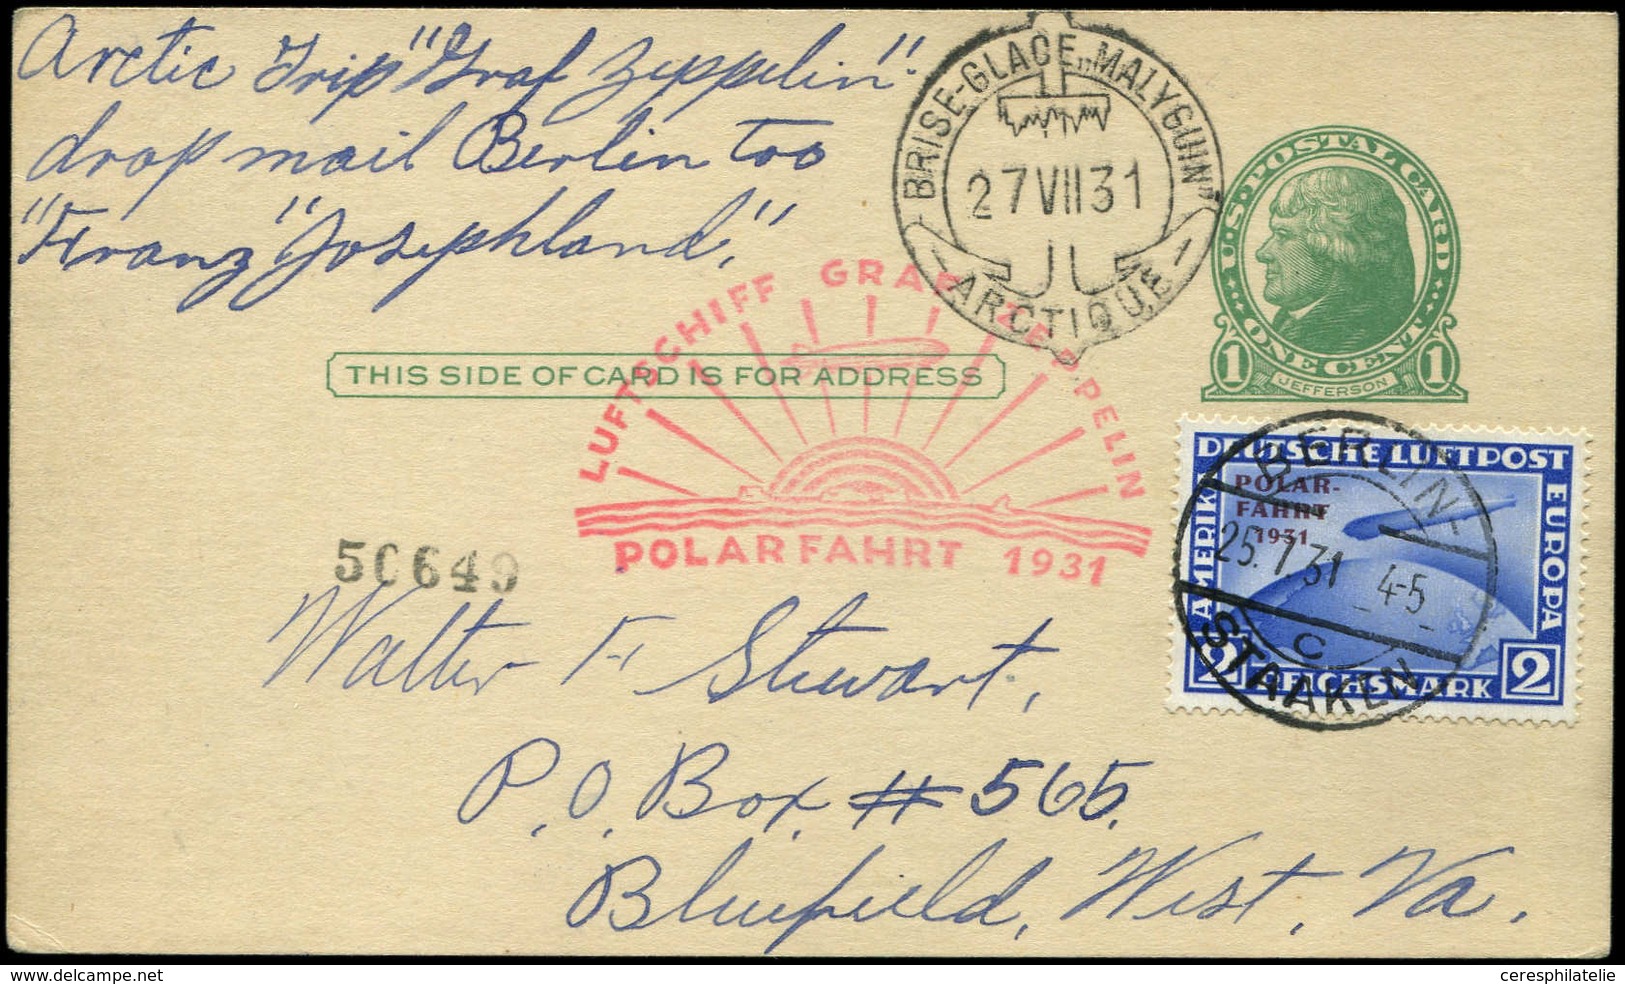 Arctic Trip "Graf Zeppelin"
drop mail Berlin too
"Franz "Josephland,"
BRISE-GLACE „MALYGUIN"
27 VII 31
ARCTIQUE
U.S. POSTAL CARD
1 ONE CENT 1
JEFFERSON
THIS SIDE OF CARD IS FOR ADDRESS
LUFTSCHIFF GRAF ZEPPELIN
POLARFAHRT 1931
50649
DEUTSCHE LUFTPOST
EUROPA
AMERIKA
POLAR-
FAHRT
1931
2 REICHSMARK 2
BERLIN-
25.7.31 4-5
C
STAAKEN
Walter F Stewart,
P.O. Box #565.
Bluefield, West. Va.
www.delcampe.net
ceresphilatelie